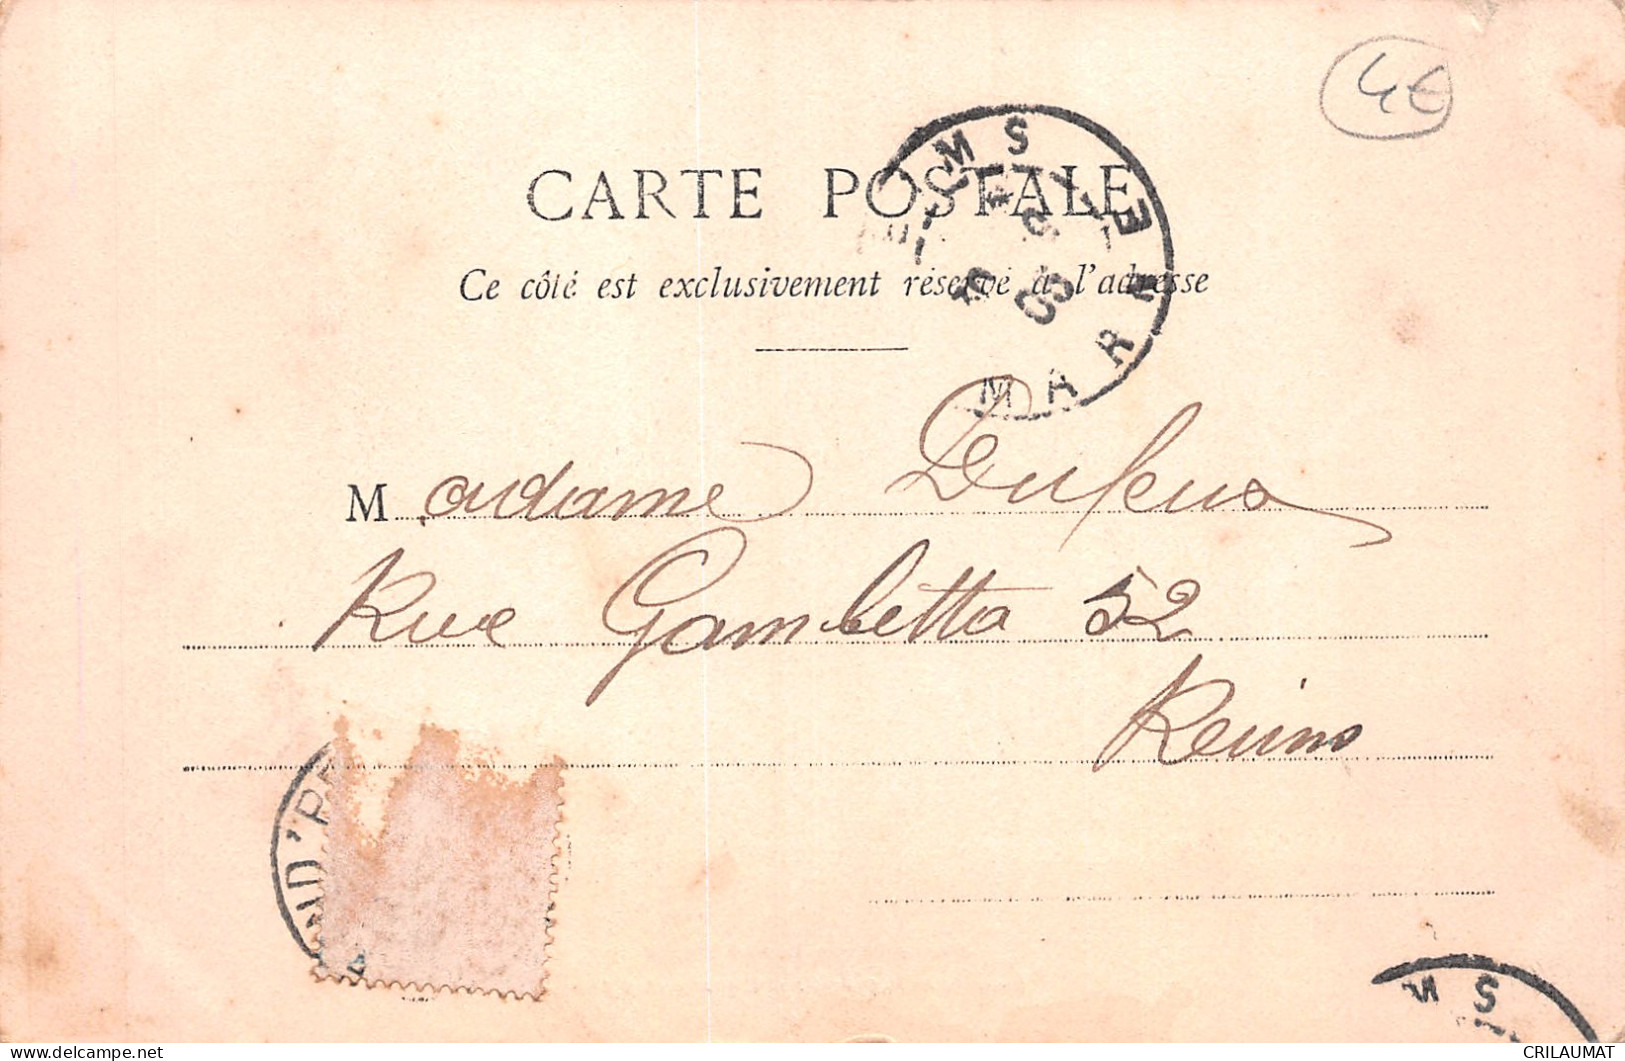 4€
CARTE POSTALE
Ce côté est exclusivement réservé à l'adresse
MS
05
MARNE
Madame
Rue Gambetta 52
Reims
MS
CRILAUMAT